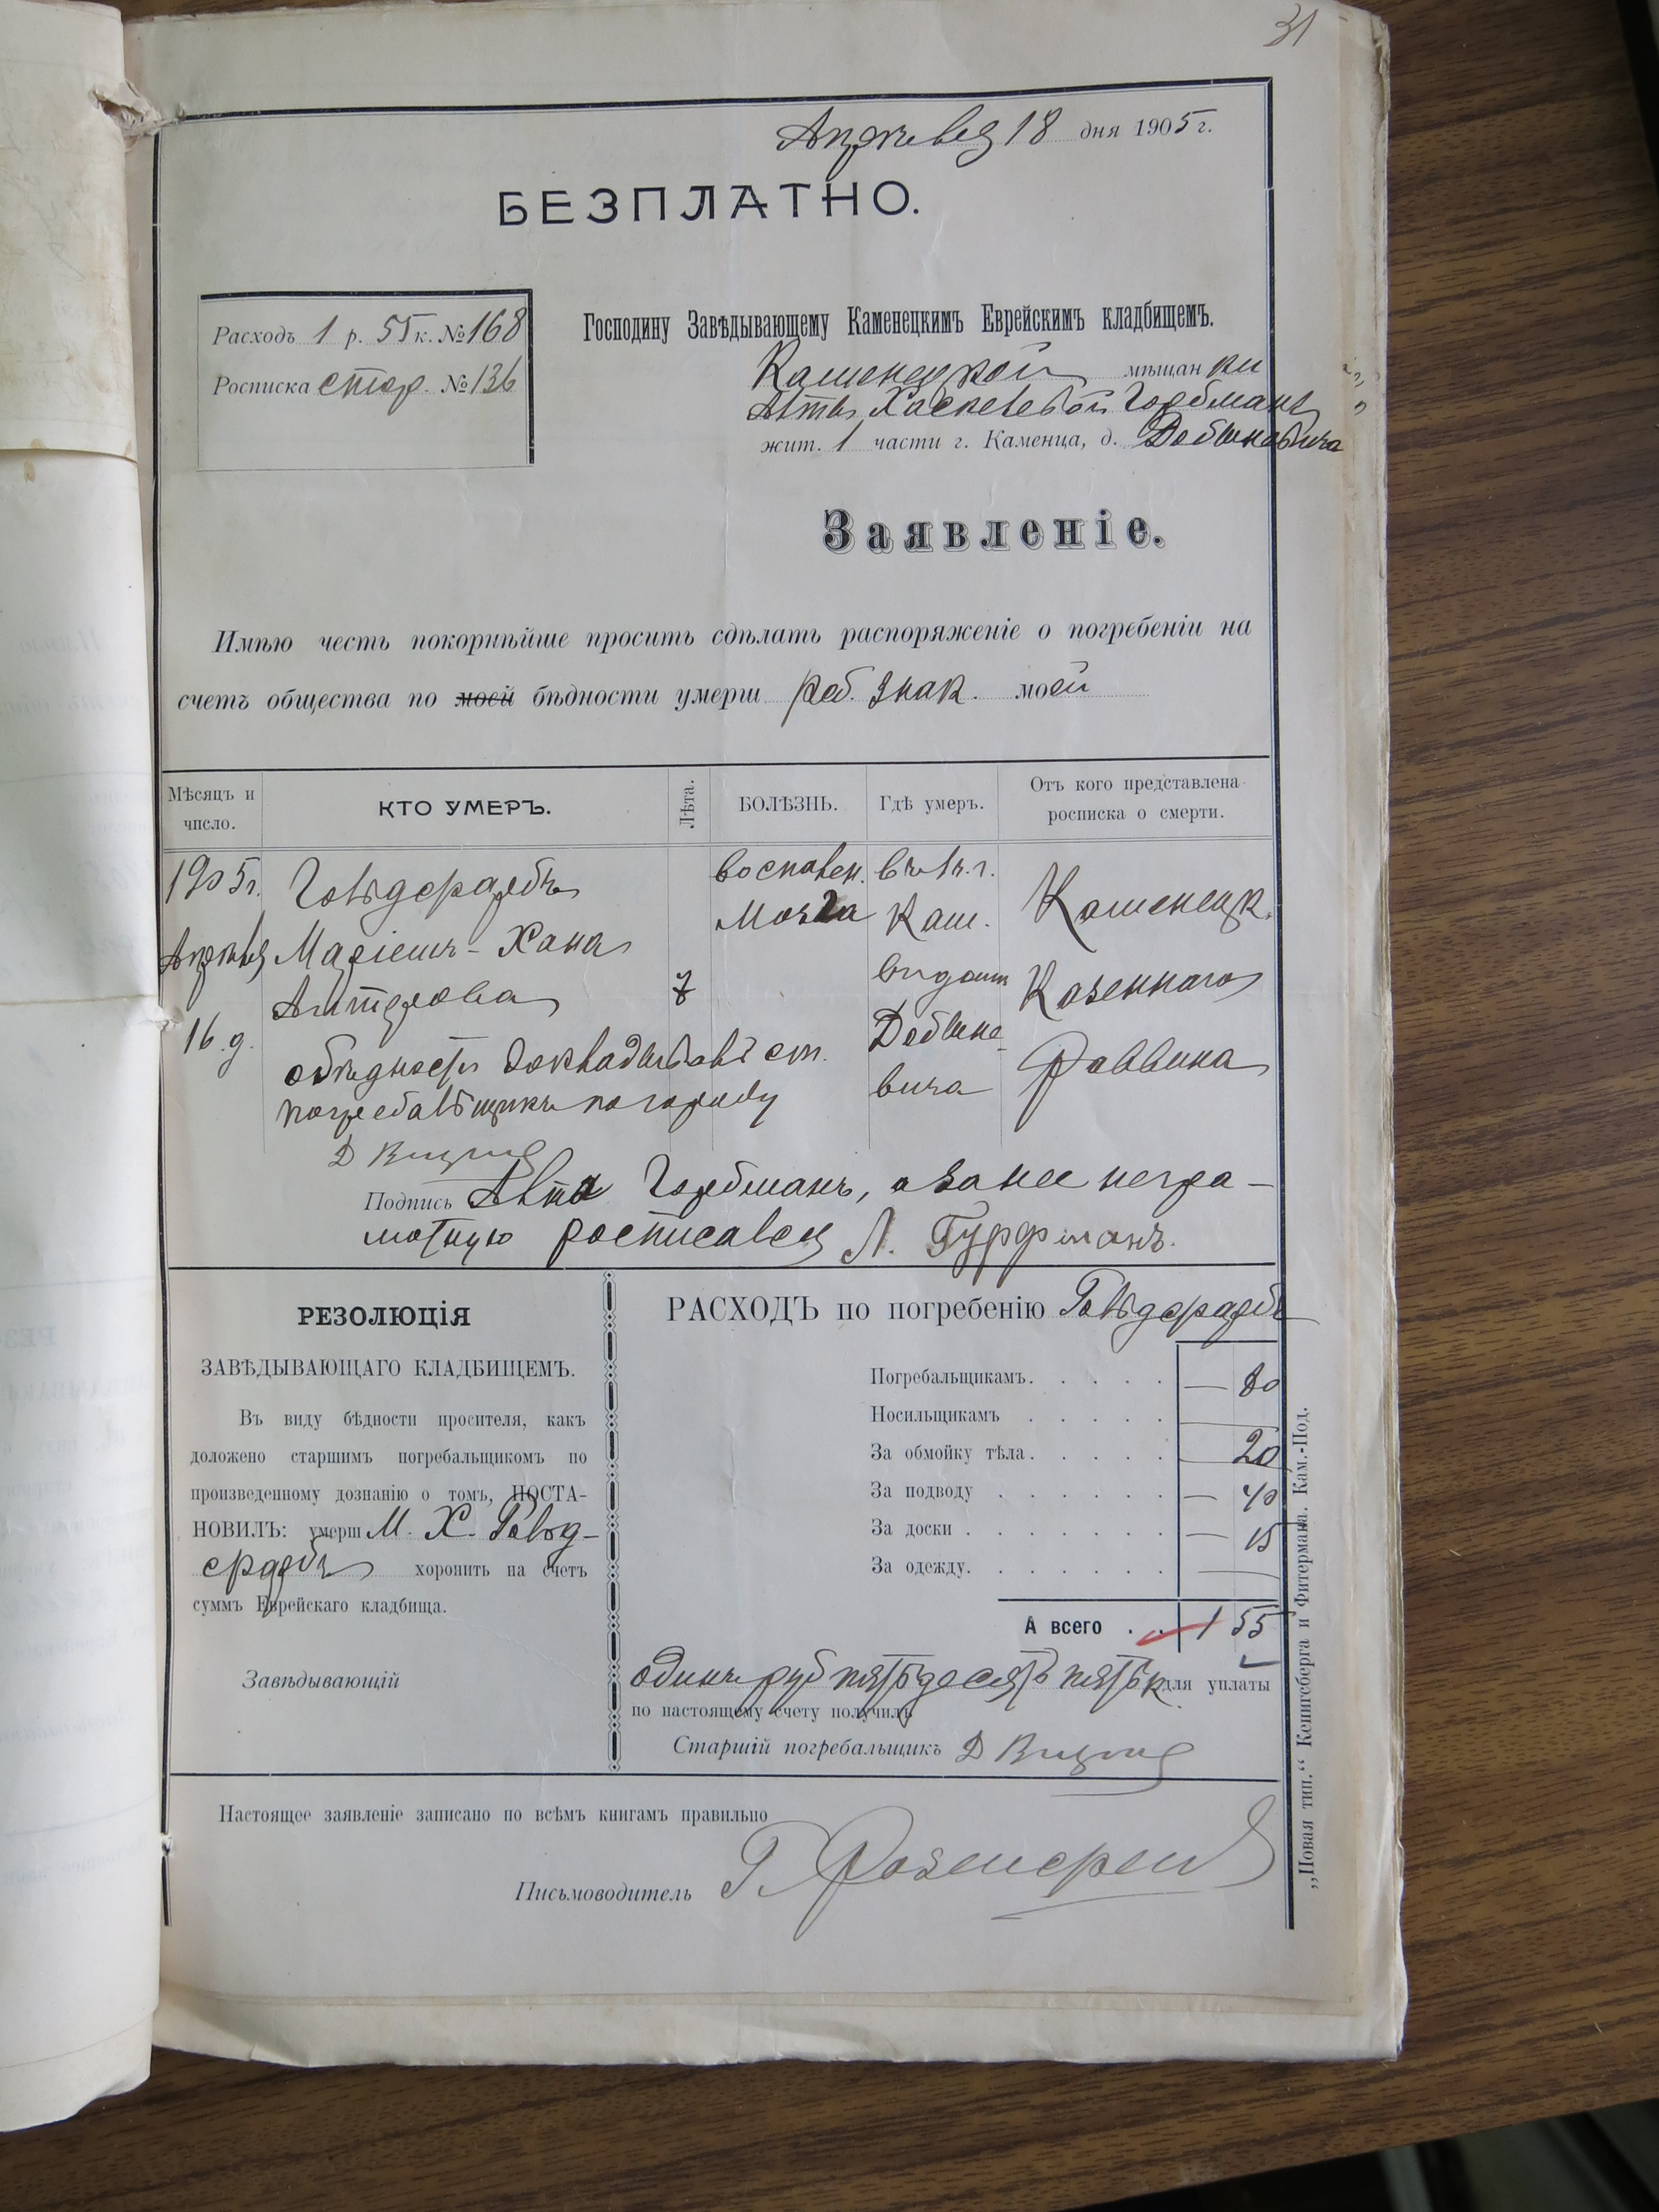 31
Апрѣля 18 дня 1905 г.
БЕЗПЛАТНО.
Расходъ 1 р. 55 к. № 168
Росписка стар. № 136
Господину Завѣдывающему Каменецкимъ Еврейскимъ кладбищемъ.
Каменецкой мѣщанки
Хаскелевой Горбманъ
жит. 1 части г. Каменца, д.
Заявленіе.
Имѣю честь покорнѣйше просить сдѣлать распоряженіе о погребеніи на
счетъ общества по моей бѣдности умерш реб. знак. моей
Мѣсяцъ и число.
КТО УМЕРЪ.
Лѣта.
БОЛѢЗНЬ.
Гдѣ умеръ.
Отъ кого представлена росписка о смерти.
1905 г. Гольдфарбъ воспален. въ г.
Апрѣля Маріемъ-Хана мозга Кам. Каменецк.
16 д. 7 Казеннаго
вича Раввина
о бѣдности докладывалъ ст.
погребальщикъ по городу
Подпись Горбманъ, а за нее негра-
мотную росписался Л. Гуффманъ.
РЕЗОЛЮЦІЯ
ЗАВѢДЫВАЮЩАГО КЛАДБИЩЕМЪ.
Въ виду бѣдности просителя, какъ
доложено старшимъ погребальщикомъ по
произведенному дознанію о томъ, ПОСТА-
НОВИЛЪ: умерш М. Х. Гольд-
фарбъ хоронить на счетъ
суммъ Еврейскаго кладбища.
Завѣдывающій
РАСХОДЪ по погребенію Гольдфарбъ
Погребальщикамъ. . . . . — 80
Носильщикамъ . . . . . —
За обмойку тѣла. . . . . 20
За подводу . . . . . . — 40
За доски . . . . . . . — 15
За одежду. . . . . . . —
А всего . . 1 55
одинъ руб пятьдесятъ пять к для уплаты
по настоящему счету получилъ
Старшій погребальщикъ Д
Настоящее заявленіе записано по всѣмъ книгамъ правильно
Письмоводитель Г.
„Новая тип.“ Кенигсберга и Фитермана. Кам.-Под.